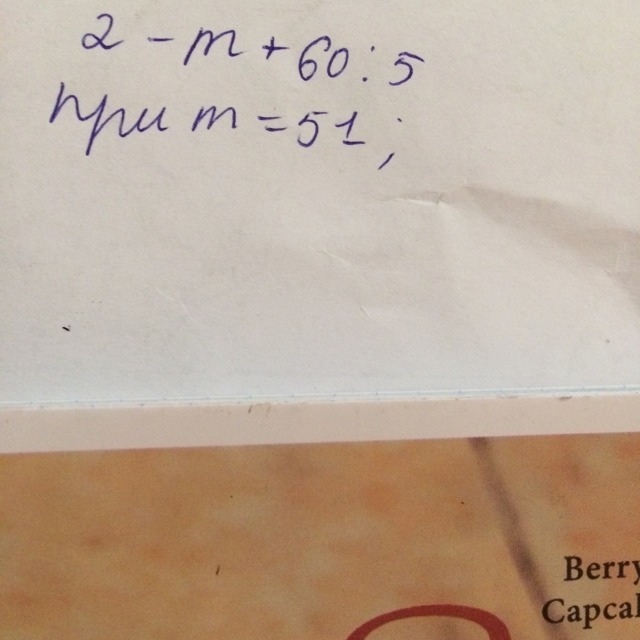 2 - m + 60 : 5
при m = 51 ;
Berry
Capcak